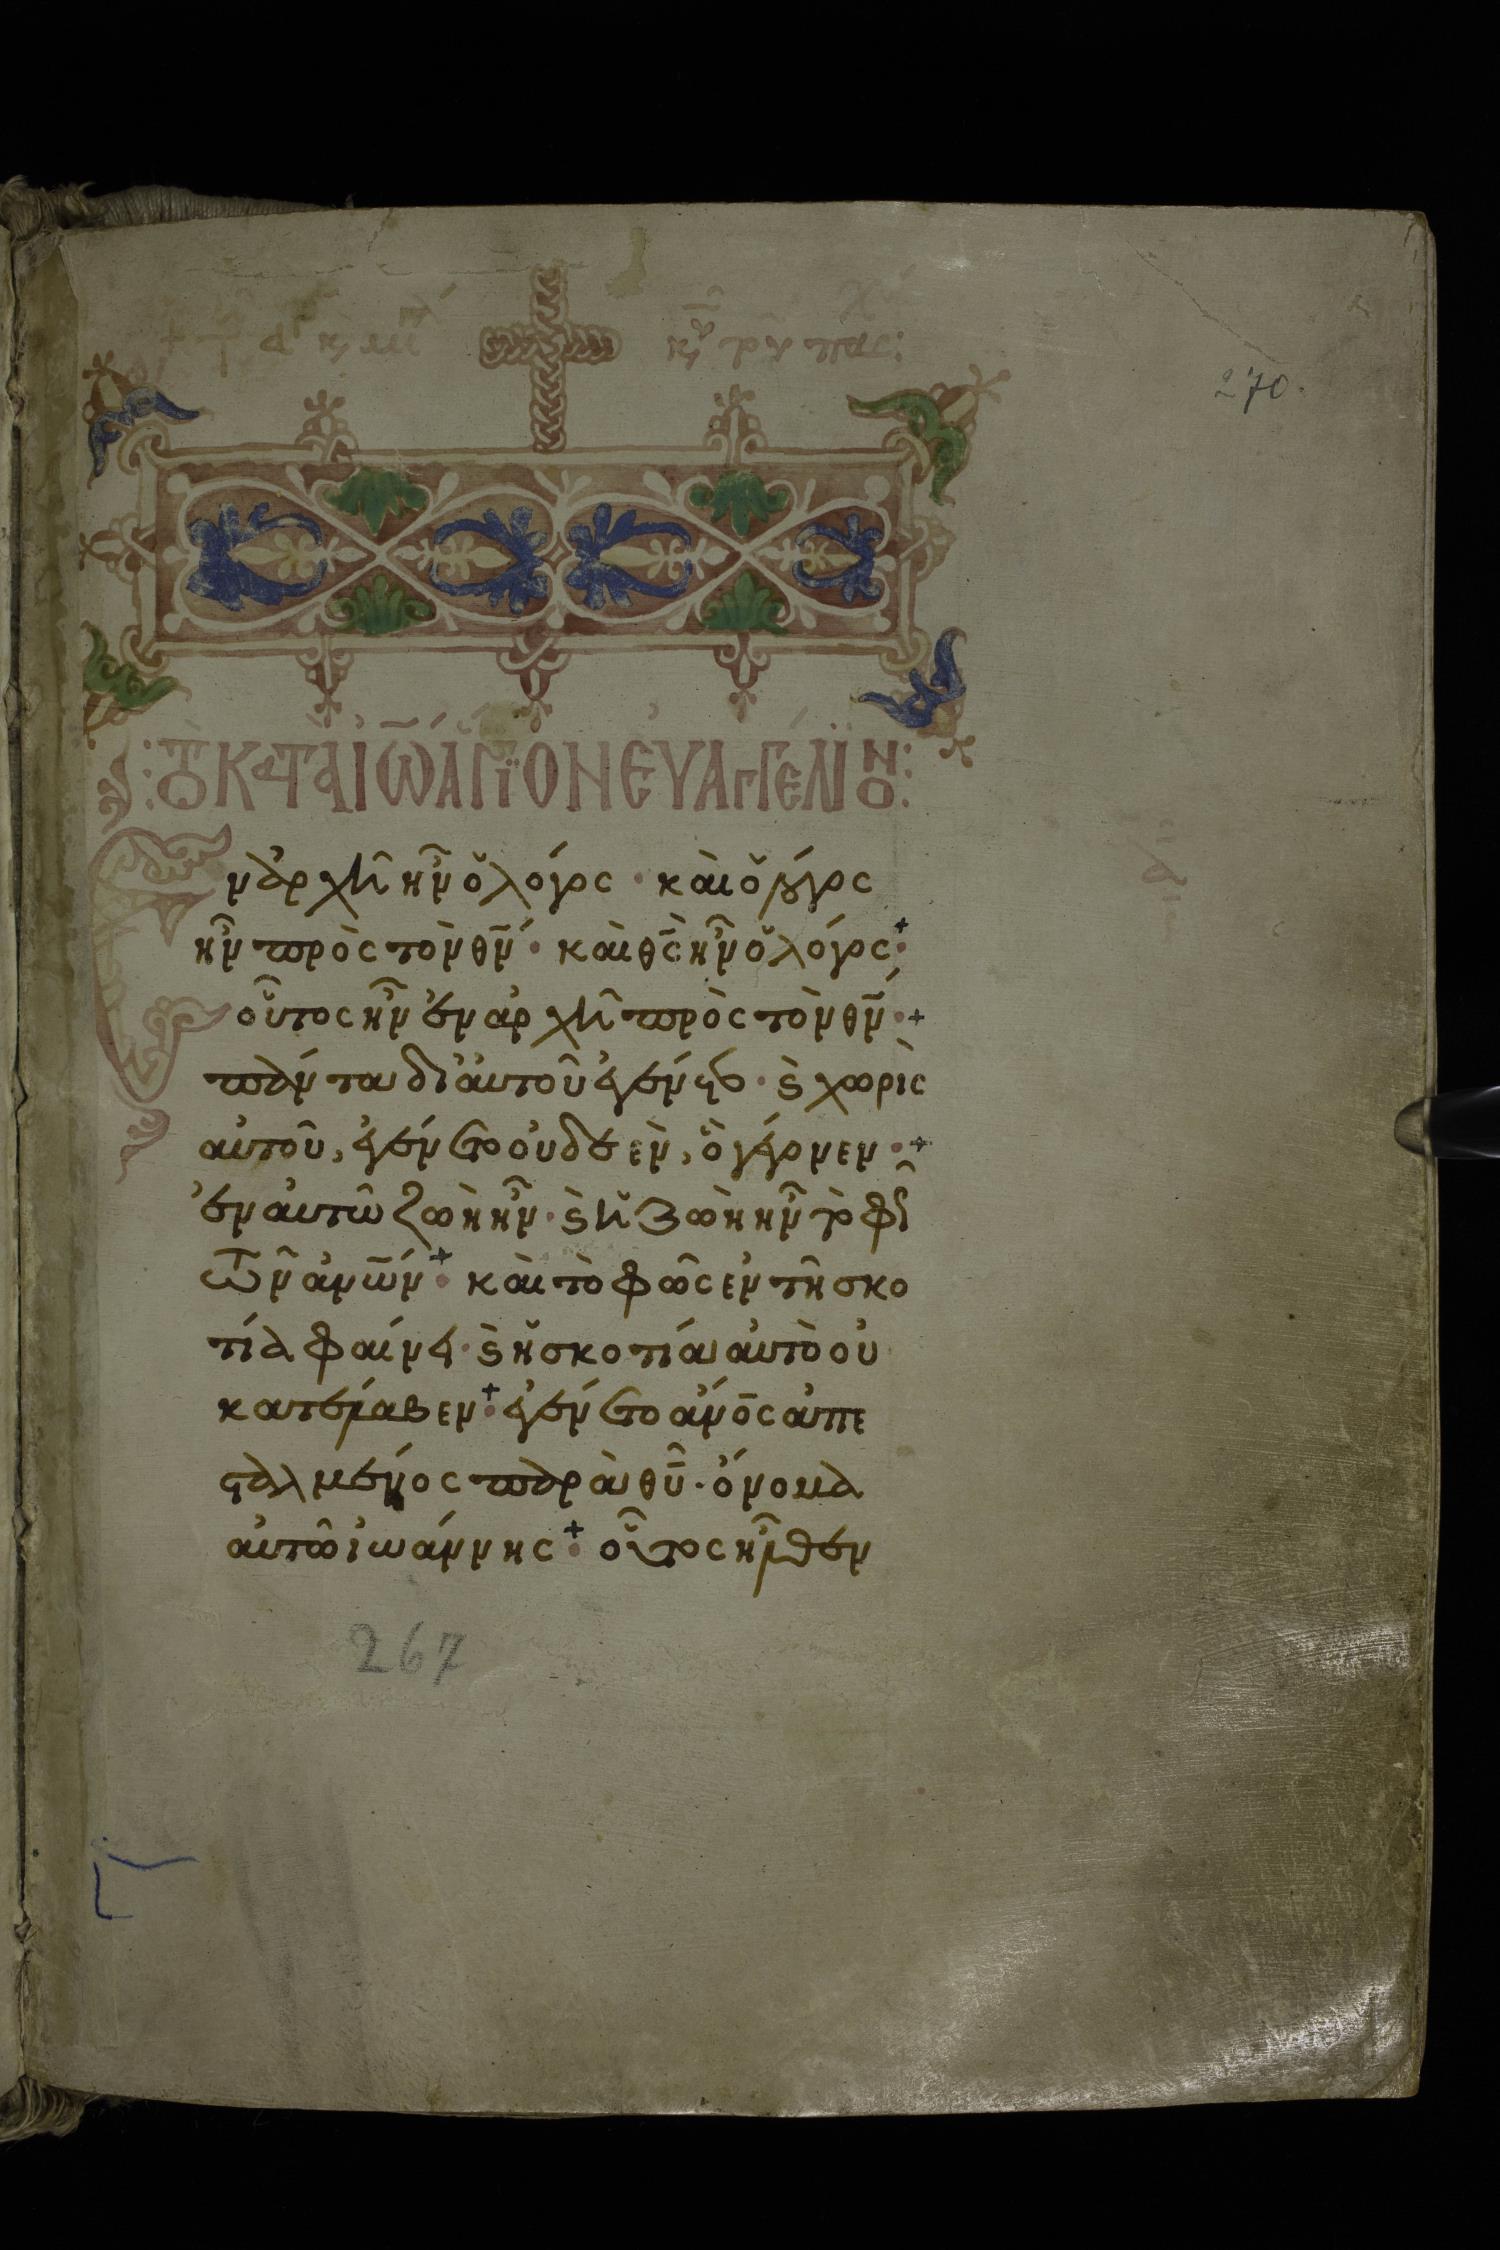 270.
: τὸ κατὰ ἰω̅ ἅγϊον ἐυαγγέλϊον :
Ἐν ἀρχῆ ἦν ὁ λόγος · καὶ ὁ λόγος
ἦν πρὸς τὸν θ̅ν · καὶ θ̅ς ἦν ὁ λόγος · +
οὗτος ἦν ἐν ἀρχῆ πρὸς τὸν θ̅ν · +
πάντα δι ἀυτοῦ ἐγένετο · ϗ χωρὶς
αὐτοῦ, ἐγένετο οὐδὲ ἐν, ὃ γέγονεν · +
ἐν ἀυτῶ ζωὴ ἦν · ϗ ἡ ζωὴ ἦν τὸ φῶ
τῶν ἀν̅ων · + καὶ τὸ φῶς ἐν τῆ σκο
τία φαίνει · ϗ ἡ σκοτία αὐτὸ οὐ
κατέλαβεν · + ἐγένετο ἄν̅ος ἀπε
σταλμένος παρὰ θ̅υ · ὄνομα
αὐτῶ ἰωάννης · + οὗτος ἦλθεν
267